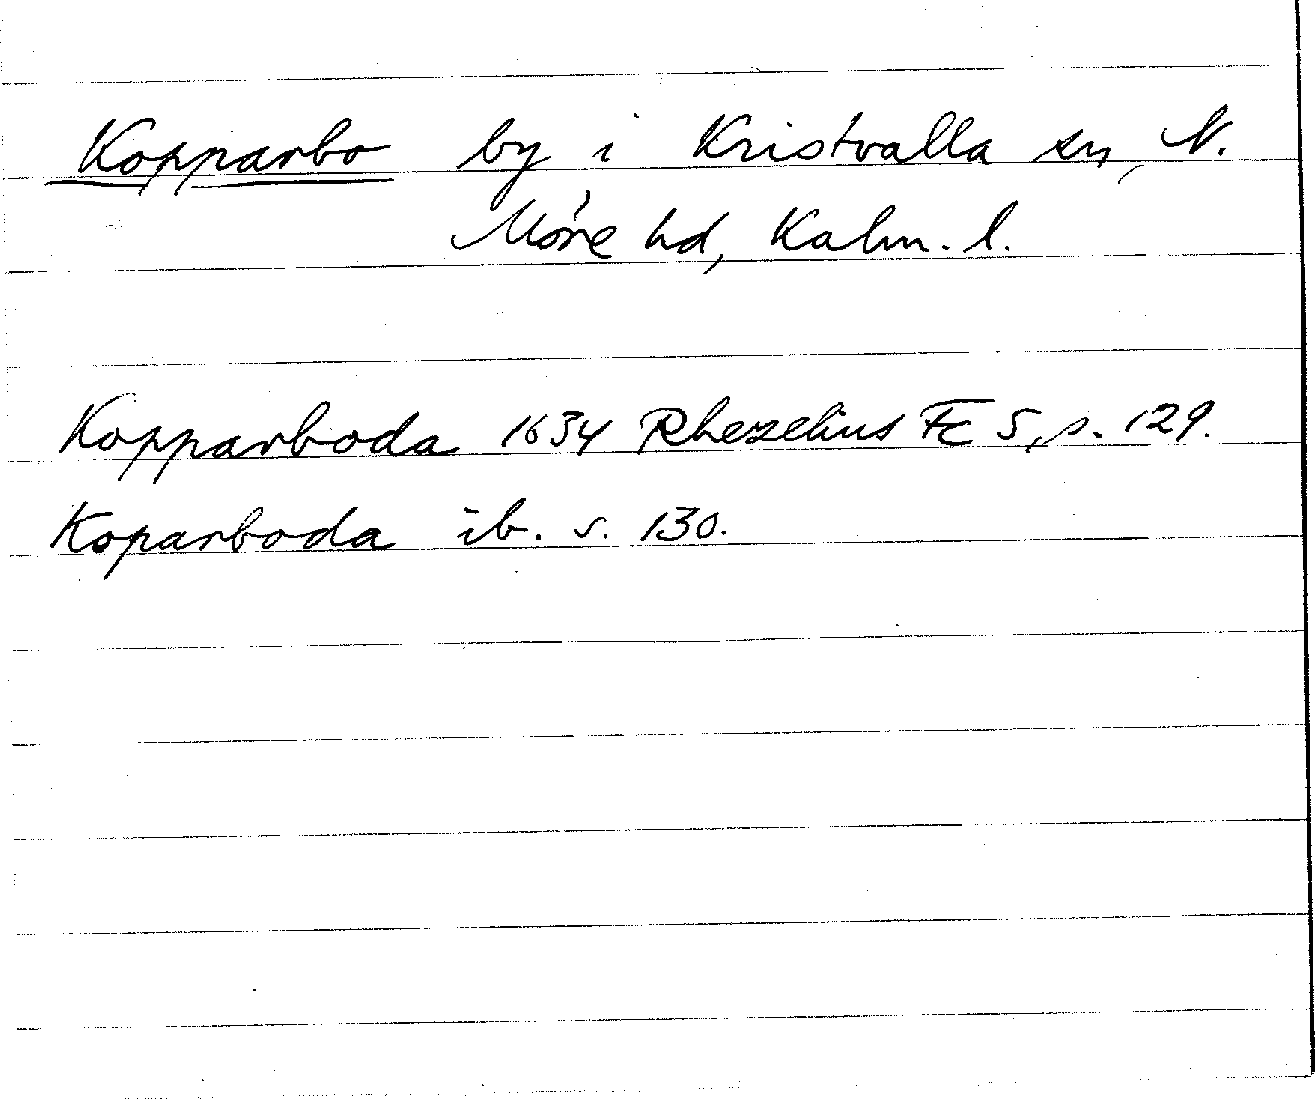 Kopparbo by i Kristvalla sn, N.
Möre hd, Kalm. l.
Kopparboda 1634 Rhezelius Fc 5, s. 129.
Koparboda ib. s. 130.